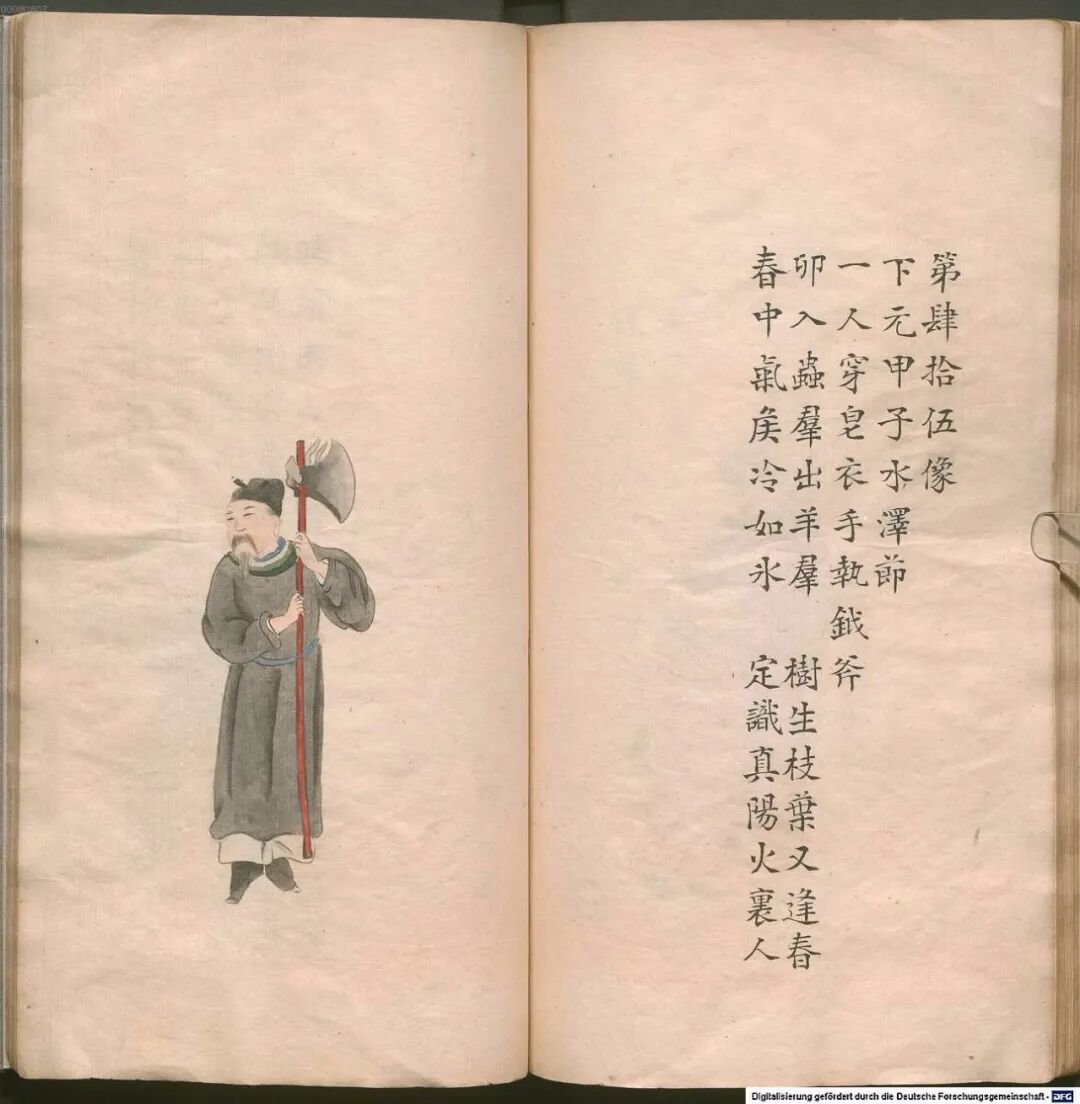 第肆拾伍像
下元甲子水澤節
一人穿皂衣手執鉞斧
卯入蟲羣出羊羣 樹生枝葉又逢春
春中氣矦冷如氷 定識真陽火裏人
Digitalisierung gefördert durch die Deutsche Forschungsgemeinschaft - DFG